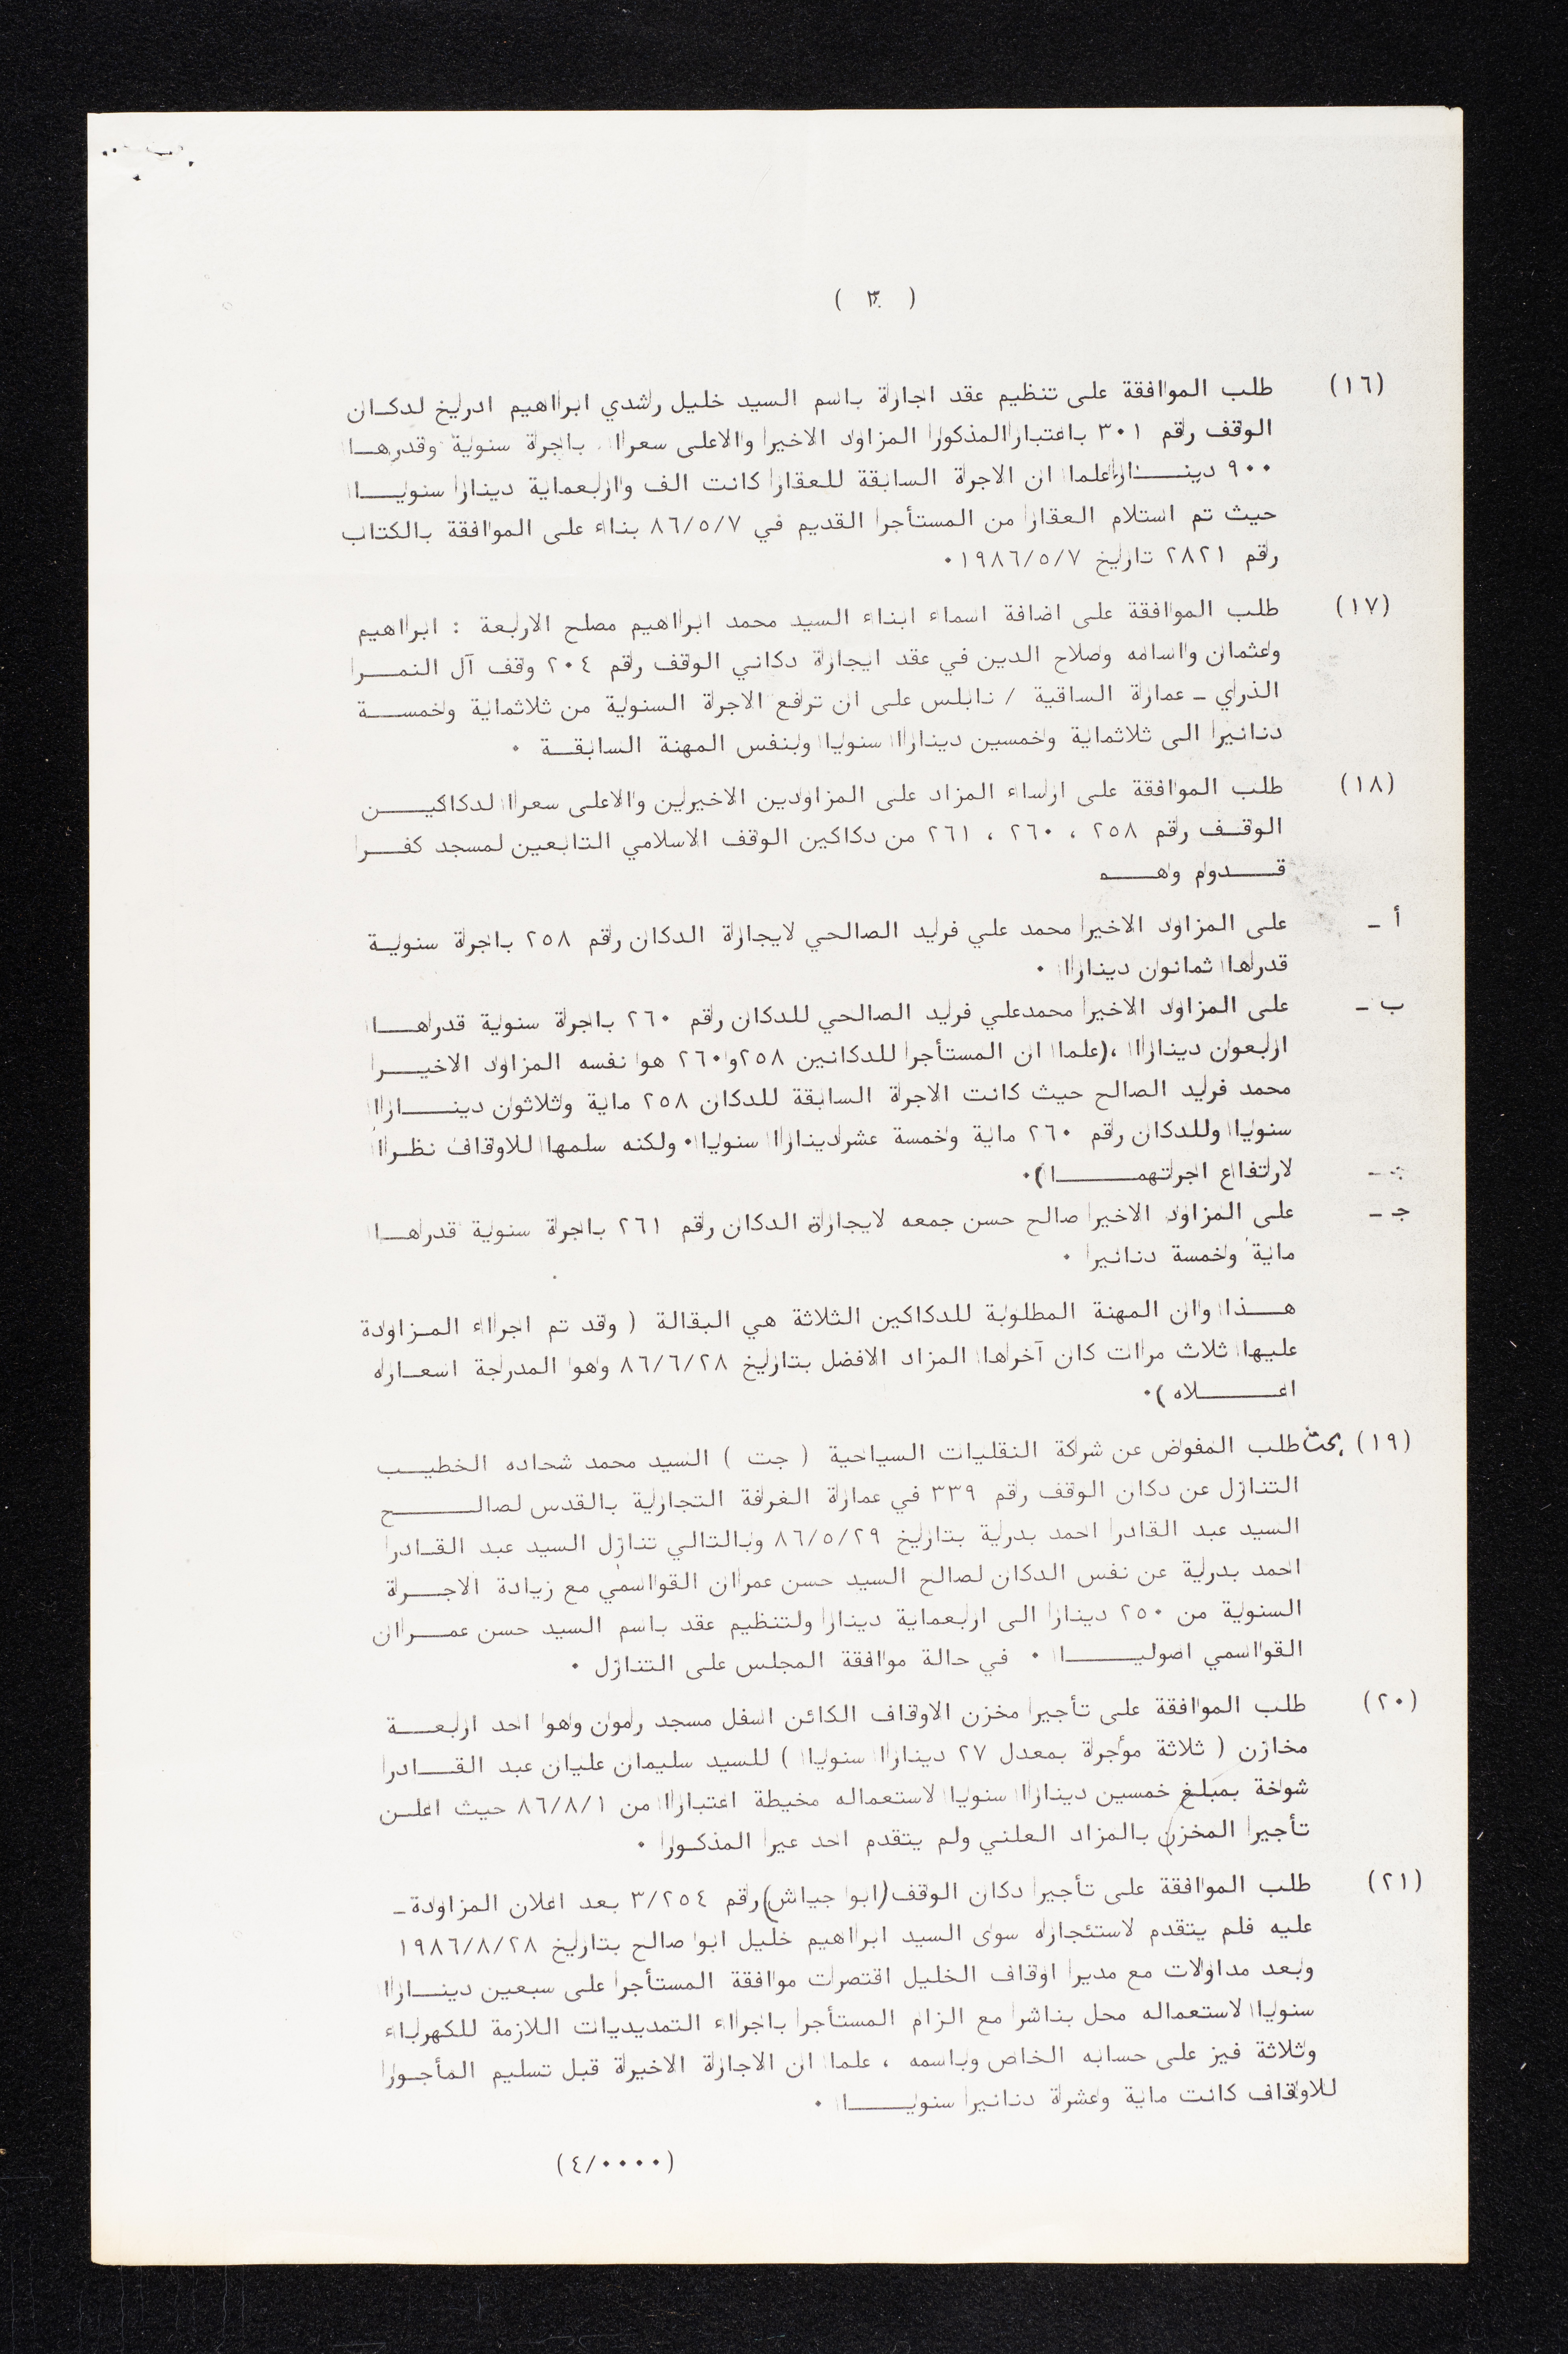 ( ٣ )
(١٦) طلب الموافقة على تنظيم عقد اجارة باسم السيد خليل راشدي ابراهيم ادريخ لدكـان
الوقف رقم ٣٠١ باعتبار المذكور المزاود الاخير والاعلى سعرا باجرة سنوية وقدرهـــا
٩٠٠ دينـــار علما ان الاجرة السابقة للعقار كانت الف واربعماية دينار سنويـــا
حيث تم استلام العقار من المستأجر القديم في ٨٦/٥/٧ بناء على الموافقة بالكتاب
رقم ٢٨٢١ تاريخ ١٩٨٦/٥/٧ ٠
(١٧) طلب الموافقة على اضافة اسماء ابناء السيد محمد ابراهيم مصلح الاربعة : ابراهيم
وعثمان واسامه وصلاح الدين في عقد ايجارة دكاني الوقف رقم ٢٠٤ وقف آل النمـــر
الذري ـ عمارة الساقية / نابلس على ان ترفع الاجرة السنوية من ثلاثماية وخمســـة
دنانير الى ثلاثماية وخمسين دينارا سنويا وبنفس المهنة السابقـــة ٠
(١٨) طلب الموافقة على ارساء المزاد على المزاودين الاخيرين والاعلى سعرا لدكاكيـــن
الوقــف رقم ٢٥٨ ، ٢٦٠ ، ٢٦١ من دكاكين الوقف الاسلامي التابعين لمسجد كفـــر
قـــدوم وهـــم
أ ـ على المزاود الاخير محمد علي فريد الصالحي لايجارة الدكان رقم ٢٥٨ باجرة سنويـة
قدرها ثمانون دينارا ٠
ب ـ على المزاود الاخير محمدعلي فريد الصالحي للدكان رقم ٢٦٠ باجرة سنوية قدرهـــا
اربعون دينارا ،(علما ان المستأجر للدكانين ٢٥٨و٢٦٠ هو نفسه المزاود الاخيـــر
محمد فريد الصالح حيث كانت الاجرة السابقة للدكان ٢٥٨ ماية وثلاثون دينـــارا
سنويا وللدكان رقم ٢٦٠ ماية وخمسة عشردينارا سنويا٠ ولكنه سلمها للاوقاف نظـرا
لارتفاع اجرتهمـــا )٠
جـ ـ على المزاود الاخير صالح حسن جمعه لايجارة الدكان رقم ٢٦١ باجرة سنوية قدرهـــا
ماية وخمسة دنانير ٠
هـــذا وان المهنة المطلوبة للدكاكين الثلاثة هي البقالة ( وقد تم اجراء المـزاودة
عليها ثلاث مرات كان آخرها المزاد الافضل بتاريخ ٨٦/٦/٢٨ وهو المدرجة اسعـاره
اعـــلاه )٠
(١٩) بحث طلب المفوض عن شركة النقليات السياحية ( جت ) السيد محمد شحاده الخطيــب
التنازل عن دكان الوقف رقم ٣٣٩ في عمارة الغرفة التجارية بالقدس لصالـــح
السيد عبد القادر احمد بدرية بتاريخ ٨٦/٥/٢٩ وبالتالي تنازل السيد عبد القــادر
احمد بدرية عن نفس الدكان لصالح السيد حسن عمران القواسمي مع زيادة الاجـــرة
السنوية من ٢٥٠ دينار الى اربعماية دينار ولتنظيم عقد باسم السيد حسن عمـــران
القواسمي اصوليـــا ٠ في حالة موافقة المجلس على التنازل ٠
(٢٠) طلب الموافقة على تأجير مخزن الاوقاف الكائن اسفل مسجد رمون وهو احد اربعـــة
مخازن ( ثلاثة مؤجرة بمعدل ٢٧ دينارا سنويا ) للسيد سليمان عليان عبد القـــادر
شوخة بمبلغ خمسين دينارا سنويا لاستعماله مخيطة اعتبارا من ٨٦/٨/١ حيث اعلــن
تأجير المخزن بالمزاد العلني ولم يتقدم احد عير المذكـور ٠
(٢١) طلب الموافقة على تأجير دكان الوقف (ابو جياش) رقم ٣/٢٥٤ بعد اعلان المزاودة ـ
عليه فلم يتقدم لاستئجاره سوى السيد ابراهيم خليل ابو صالح بتاريخ ١٩٨٦/٨/٢٨
وبعد مداولات مع مدير اوقاف الخليل اقتصرت موافقة المستأجر على سبعين دينـــارا
سنويا لاستعماله محل بناشر مع الزام المستأجر باجراء التمديديات اللازمة للكهرباء
وثلاثة فيز على حسابه الخاص وباسمه ، علما ان الاجارة الاخيرة قبل تسليم المأجـور
للاوقاف كانت ماية وعشرة دنانير سنويـــا ٠
(٤/٠٠٠٠)